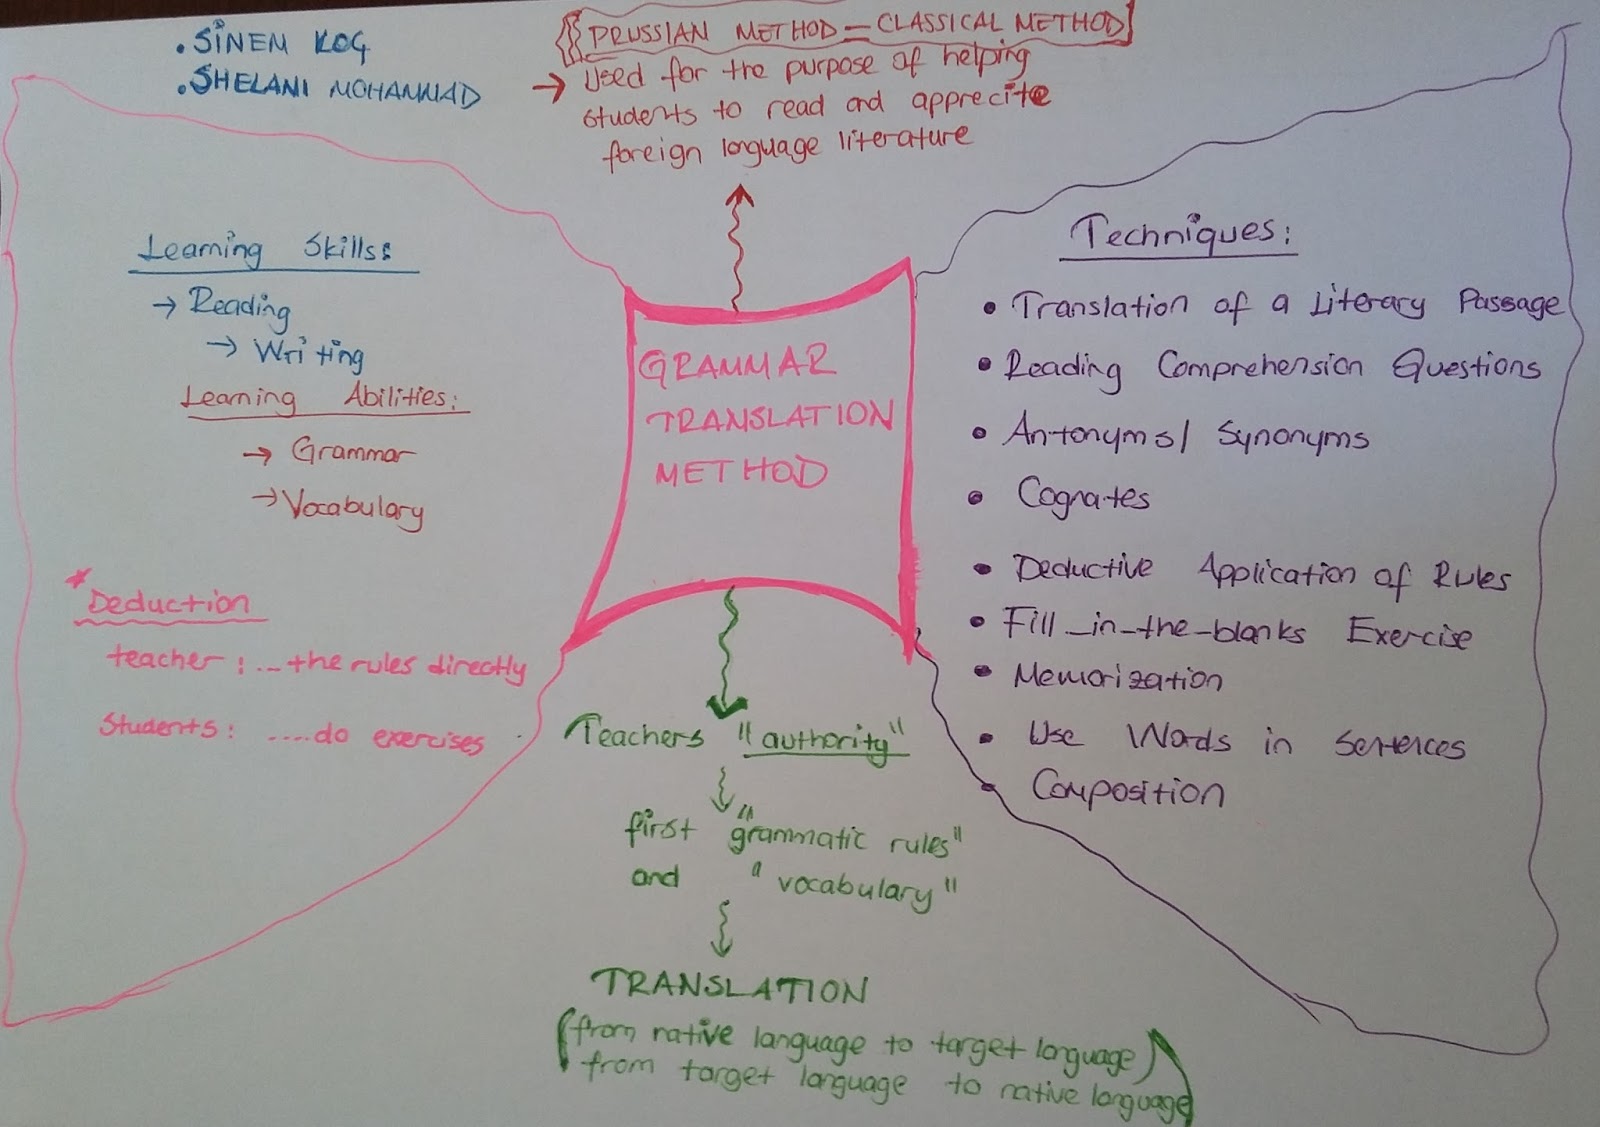 • SİNEM KOÇ
• SHELANI MOHAMMAD
PRUSSIAN METHOD = CLASSICAL METHOD
→ Used for the purpose of helping
students to read and apprecite
foreign language literature
Learning Skills:
→ Reading
→ Writing
Learning Abilities:
→ Grammar
→ Vocabulary
* Deduction
teacher : ... the rules directly
Students : ....do exercises
GRAMMAR
TRANSLATION
METHOD
Teachers "authority"
first "grammatic rules"
and "vocabulary"
TRANSLATION
(from native language to target language)
from target language to native language
Techniques:
• Translation of a Literary Passage
• Reading Comprehension Questions
• Antonyms/ Synonyms
• Cognates
• Deductive Application of Rules
• Fill-in-the-blanks Exercise
• Memorization
• Use Words in Sentences
• Composition